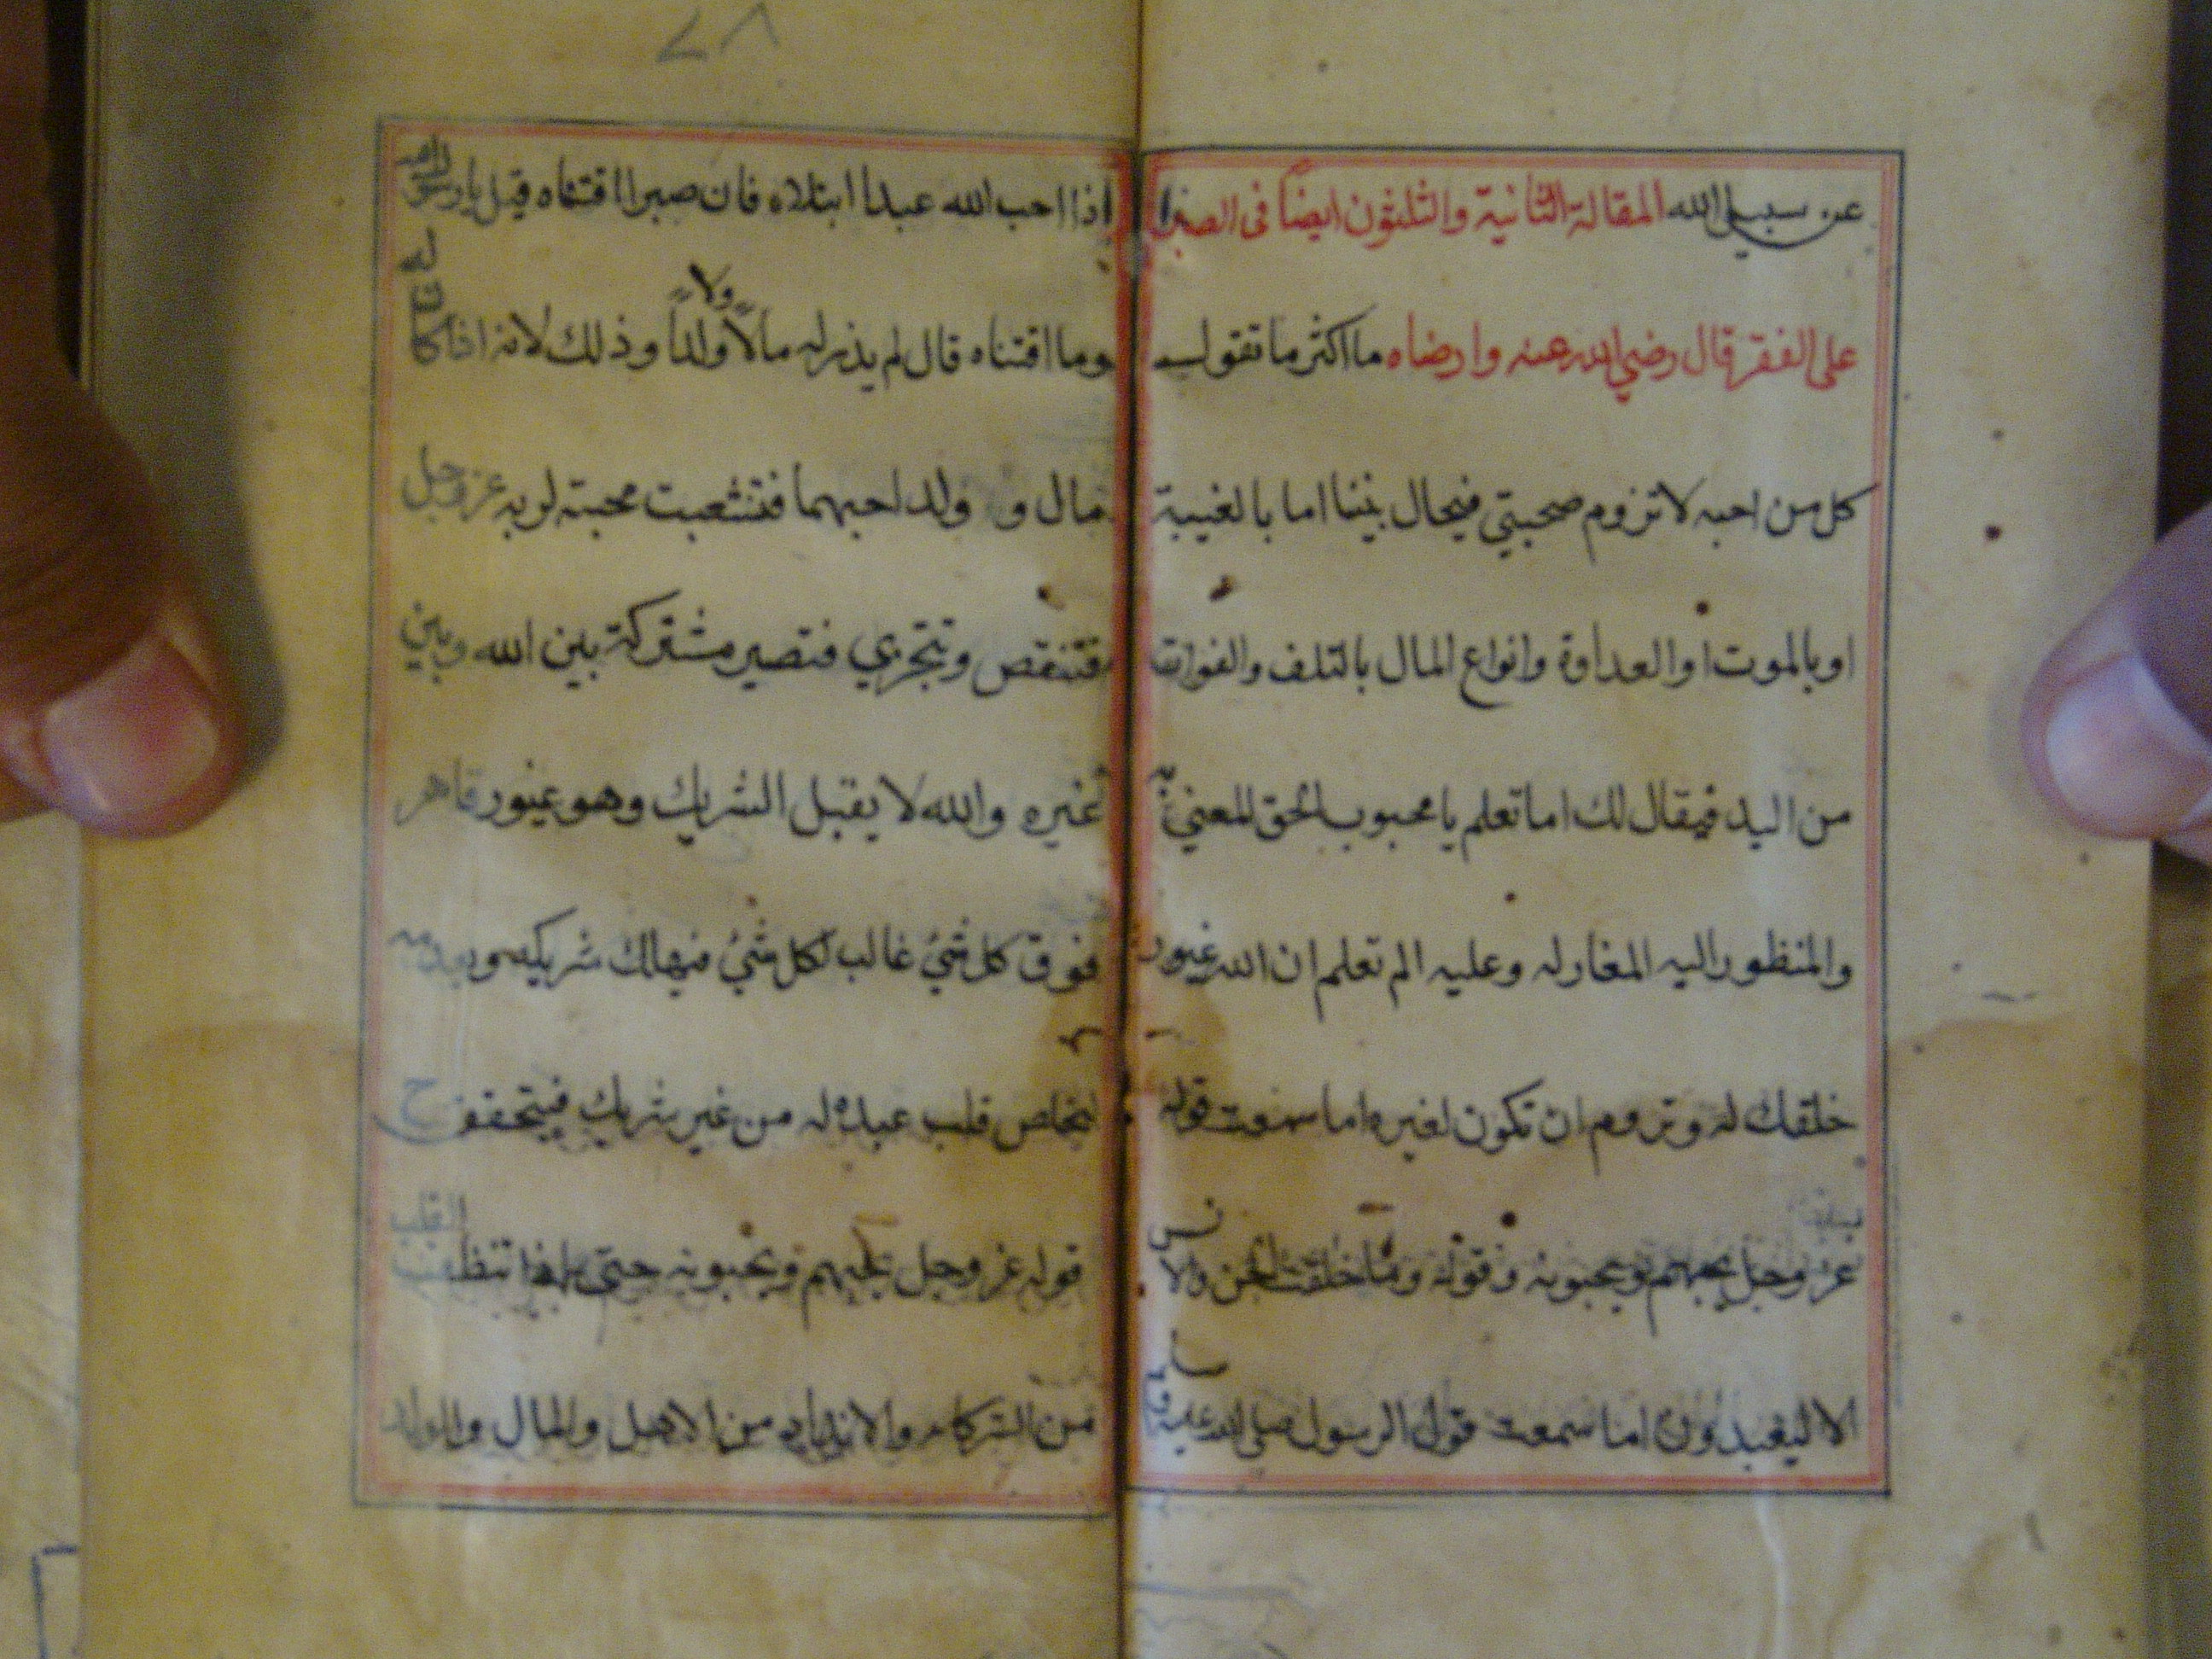 عن سبيل الله المقالة الثانية والثلثون ايضاً فى الصبر
على الفقر قال رضي الله عنه وارضاه ما اكثر ما تقول
كل من احبه لا تزوم صحبتي فيحال بيننا اما بالغيبة
او بالموت او العداوة وانواع المال بالتلف والفوات
من اليد فيقال لك اما تعلم يا محبوب الحق المعني
والمنظور اليه المغار له وعليه الم تعلم ان الله غيور
خلقك له وتروم ان تكون لغيره اما سمعت قوله
عز وجل يحبهم ويحبونه وقوله وما خلقت الجن والانس
الا ليعبدون اما سمعت قول الرسول صلى الله عليه وسلم
٧٨
اذا احب الله عبدا ابتلاه فان صبر اقتناه قيل يا رسول الله
وما اقتناه قال لم يذر له مالاً ولا ولداً وذلك لانه اذا كان له
مال و ولد احبهما فتنشعبت محبته لربه عز وجل
فتنقص وتتجزي فتصير مشتركة بين الله وبين
غيره والله لا يقبل الشريك وهو غيور قاهر
فوق كل شئ غالب لكل شئ فيهلك شريكه ويعدمه
ليخلص قلب عبده له من غير شريك فيتحقق ح
قوله عز وجل يحبهم ويحبونه حتى اذا تنظف القلب
من الشركاء والانداد من الاهل والمال والولد